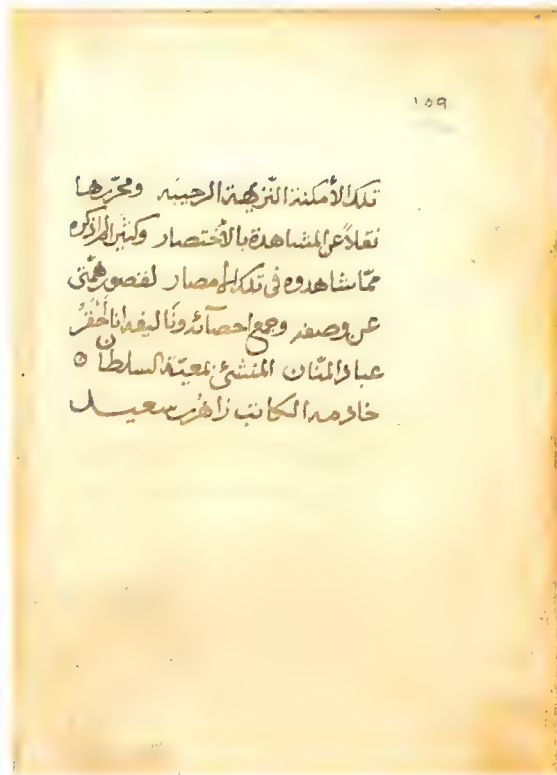 ١٥٩
تلك الأمكنة النّزيهة الرحيبه ومحرّرها
نقلاً عن المشاهدة بالأختصار وكثير لم اذكره
ممّا شاهدوه في تلك الأمصار لقصور همّتى
عن وصفه وجمع احصآئه وتأليفه انا أحْقَرُ
عباد المنّان المنشئ بمعيّة السلطان
خادمه الكاتب زاهر بن سعيد